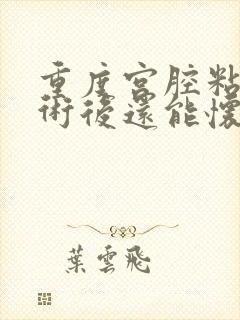 重度宮腔粘
術後還能懷
葉雲飛